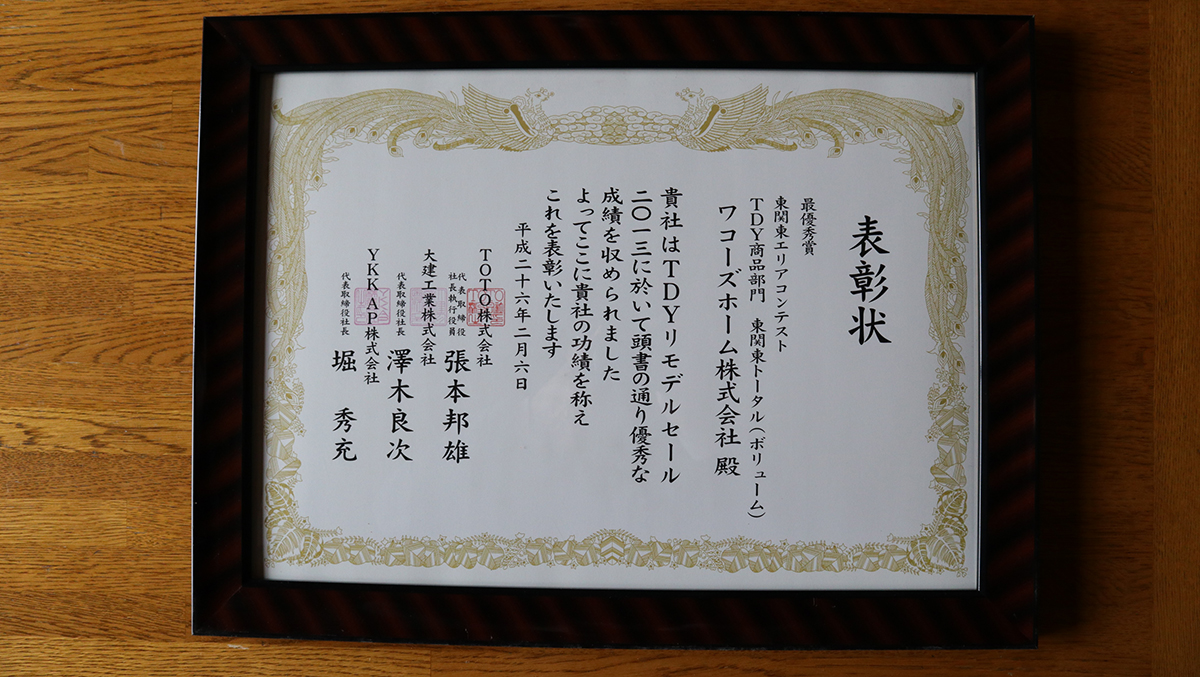 表彰状
最優秀賞
東関東エリアコンテスト
TDY商品部門 東関東トータル(ボリューム)
ワコーズホーム株式会社 殿
貴社はTDYリモデルセール
二〇一三に於いて頭書の通り優秀な
成績を収められました
よってここに貴社の功績を称え
これを表彰いたします
平成二十六年二月六日
TOTO株式会社
代表取締役
社長執行役員
張本邦雄
大建工業株式会社
代表取締役社長 澤木良次
YKK AP株式会社
代表取締役社長 堀 秀充